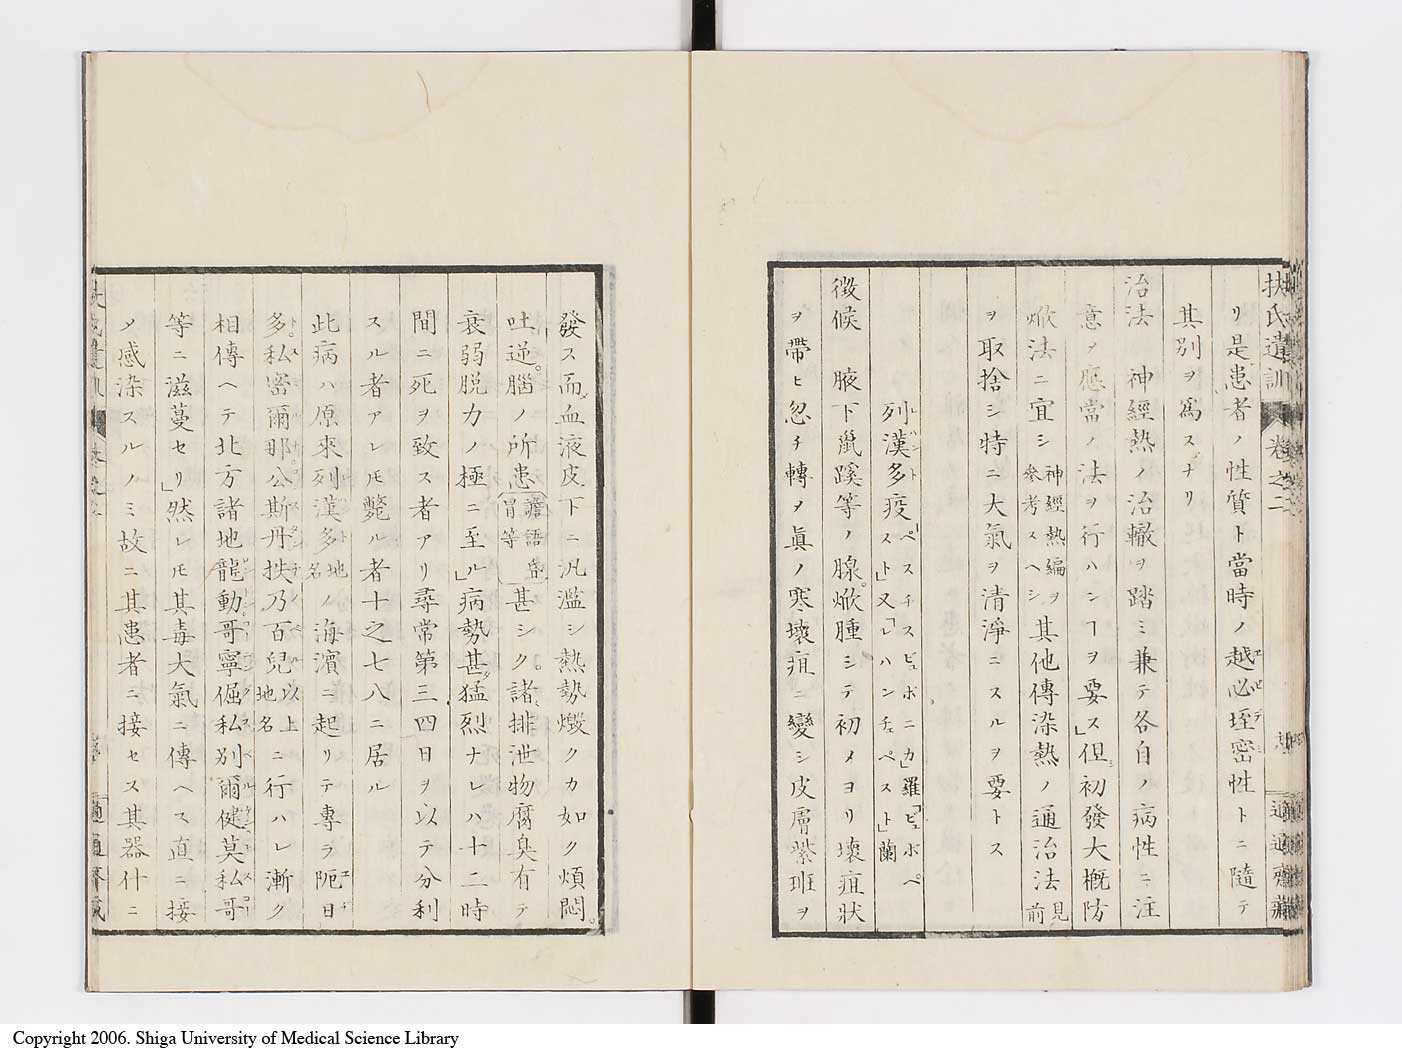 扶氏遺訓 卷之二
リ是患者ノ性質ト當時ノ越必垤密性トニ隨テ
其別ヲ爲スナリ
治法 神經熱ノ治轍ヲ踏ミ兼テ各自ノ病性ニ注
意ノ應當ノ法ヲ行ハンヿヲ要ス」但初發大概防
焮法ニ宜シ神經熱編ヲ參考スヘシ其他傳染熱ノ通治法見前
ヲ取捨シ特ニ大氣ヲ清淨ニスルヲ要トス
列漢多疫「ペスチスビュボニカ」羅「ビュボペスト」又「レハンチェペスト」蘭
徴候 腋下鼠蹊等ノ腺焮腫シテ初メヨリ壞疽狀
ヲ帶ヒ忽チ轉ノ眞ノ寒壞疽ニ變シ皮膚紫斑ヲ
發ス而血液皮下ニ汎濫シ熱勢燬クカ如ク煩悶
吐逆腦ノ所患譫語昏冒等甚シク諸排泄物腐臭有テ
衰弱脱力ノ極ニ至ル」病勢甚猛烈ナレハ十二時
間ニ死ヲ致ス者アリ尋常第三四日ヲ以テ分利
スル者アレ𪜈斃ル者十之七八ニ居ル
此病ハ原來列漢多地名ノ海濱ニ起リテ專ラ阨日
多私密爾那公斯丹扶乃百兒以上地名ニ行ハレ漸ク
相傳ヘテ北方諸地龍動哥寧倔私別爾健莫私哥
等ニ滋蔓セリ」然レ𪜈其毒大氣ニ傳ヘス直ニ接
ノ感染スルノミ故ニ其患者ニ接セス其器什ニ
Copyright 2006. Shiga University of Medical Science Library